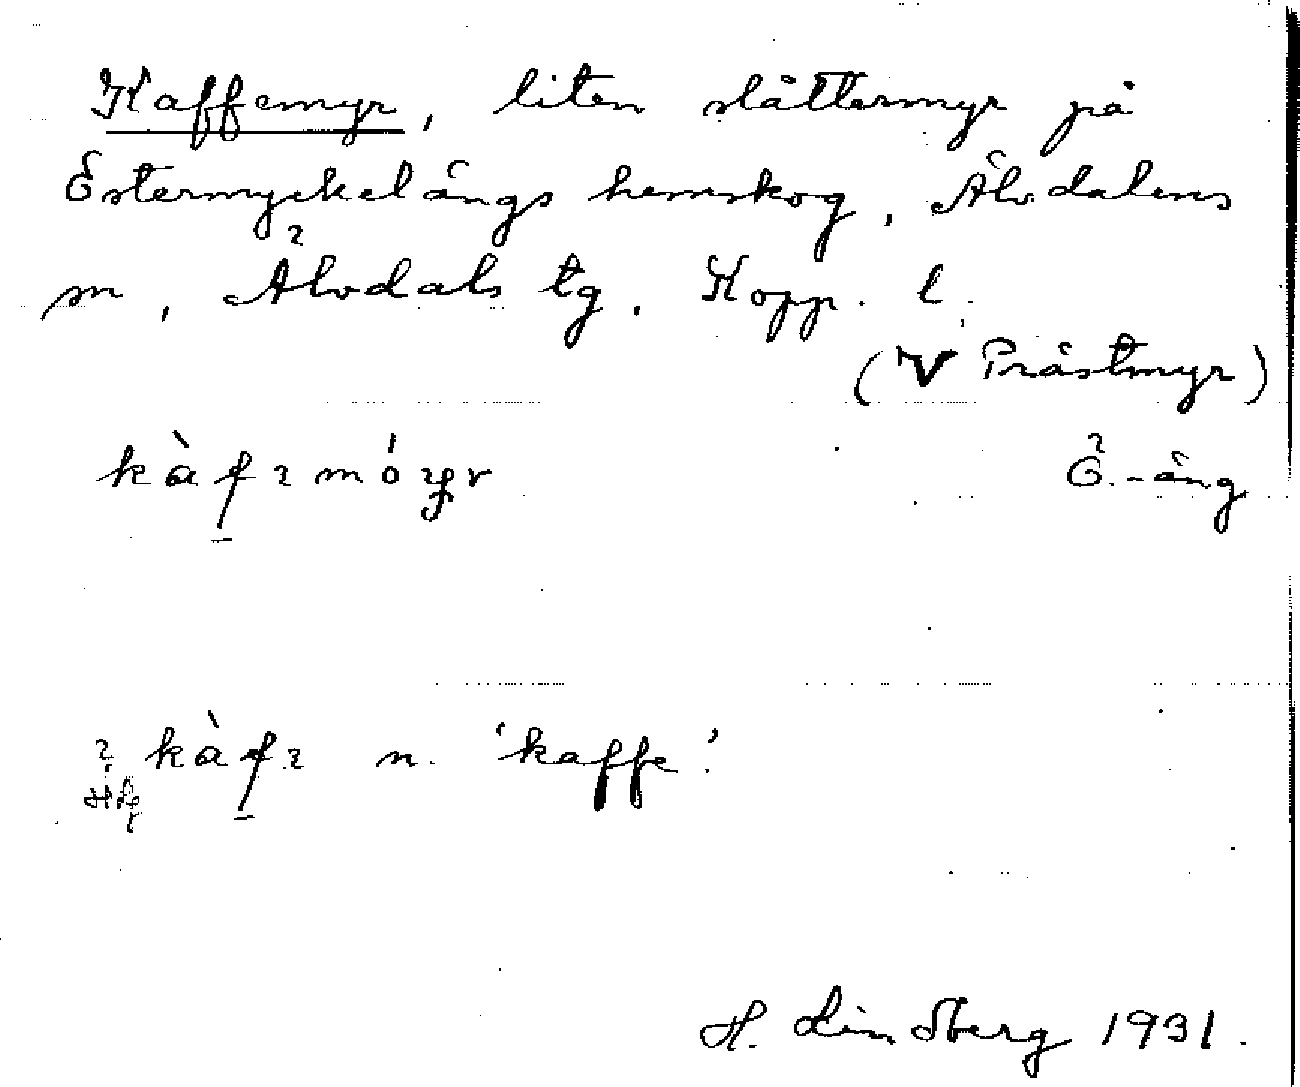 Kaffemyr, liten slåttermyr på
Östermyckelängs hemskog, Älvdalens
sn, Älvdals tg. Kopp. l.
(V Prästmyr)
Ö.-äng
n. 'kaffe'.
H. Lindberg 1931.